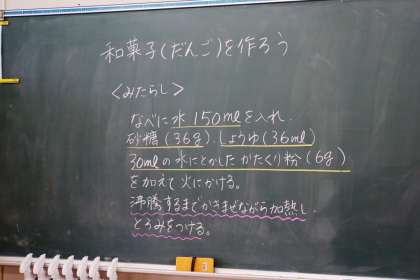 和菓子(だんご)を作ろう
<みたらし>
なべに水150mlを入れ.
砂糖(36g).しょうゆ(36ml)
30mlの水にとかしたかたくり粉(6g)
を加えて火にかける。
沸騰するまでかきまぜながら加熱し.
とろみをつける。